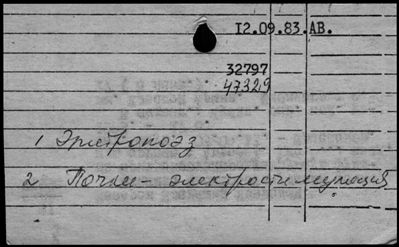 12.09.83.АВ.
32797
47329
1 Эритропоэз
2 Почки - электростимуляция